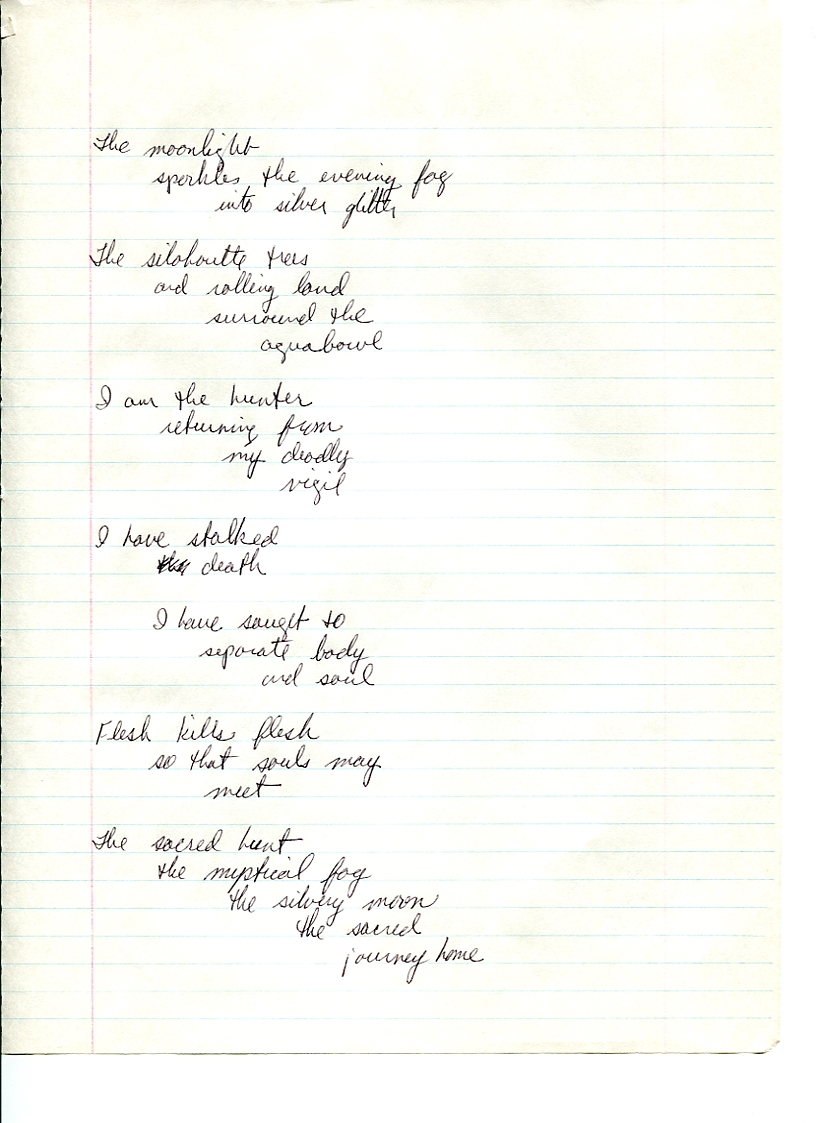 The moonlight
sparkles the evening fog
into silver glitter
The silohoutte trees
and rolling land
surround the
aquabowl
I am the hunter
returning from
my deadly
vigil
I have stalked
death
I have sought to
separate body
and soul
Flesh kills flesh
so that souls may
meet
The sacred hunt
the mystical fog
the silvery moon
the sacred
journey home